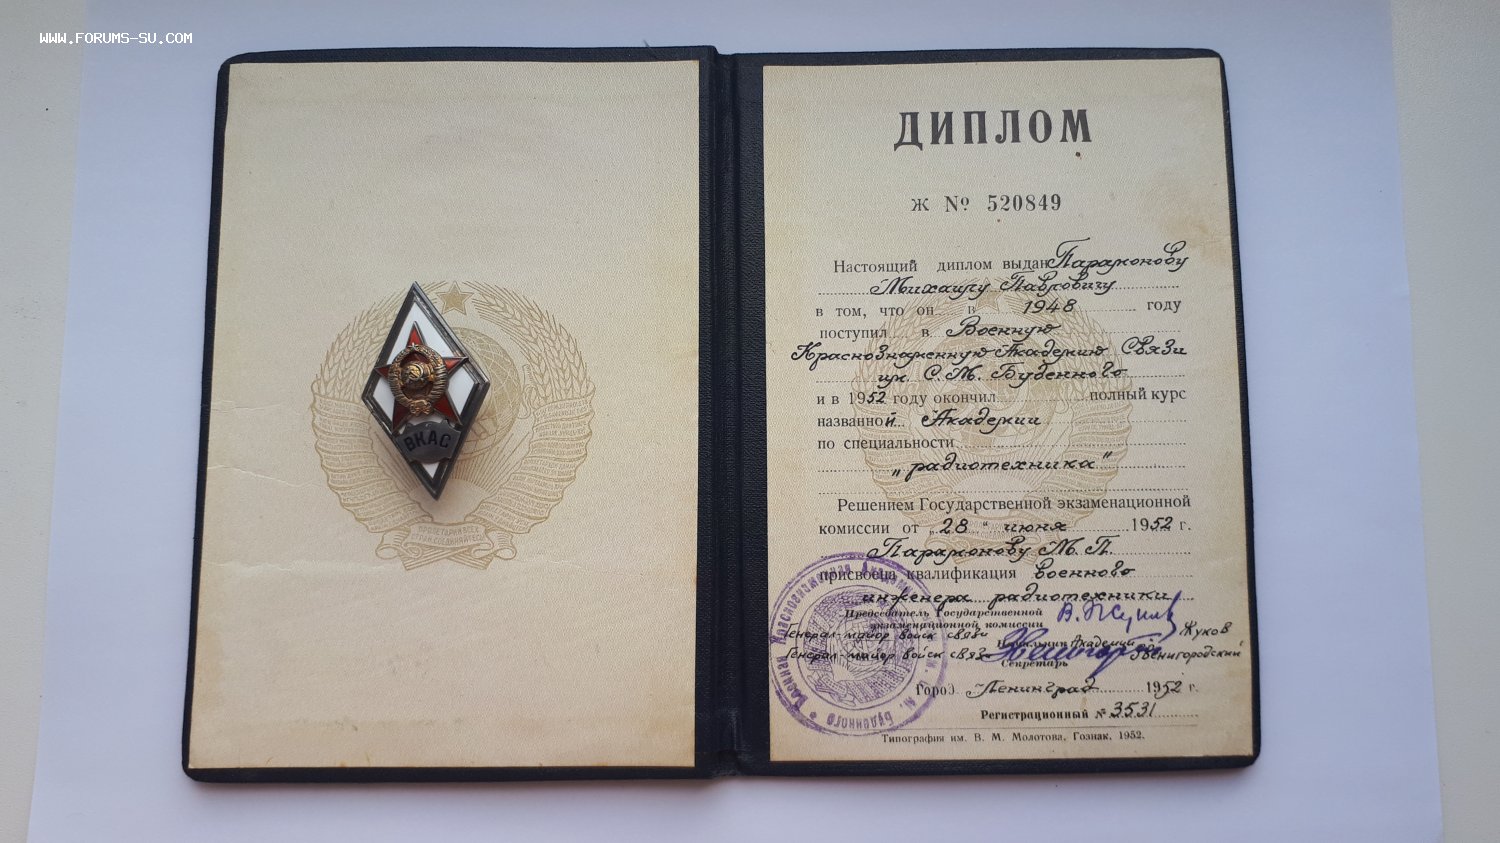 WWW.FORUMS-SU.COM
ВКАС
ПРОЛЕТАРИИ ВСЕХ
СТРАН, СОЕДИНЯЙТЕСЬ!
ДИПЛОМ
Ж № 520849
Настоящий диплом выдан Парамонову
Михаилу Павловичу
в том, что он в 1948 году
поступил в Военную
Краснознаменную Академию Связи
им. С. М. Буденного
и в 1952 году окончил полный курс
названной Академии
по специальности
„радиотехника"
Решением Государственной экзаменационной
комиссии от „28" июня 1952 г.
Парамонову М. П.
присвоена квалификация военного
инженера радиотехники
Председатель Государственной
экзаменационной комиссии
Генерал-майор войск связи Жуков
Начальник Академии
Генерал-майор войск связи Звенигородский
Секретарь
Город Ленинград 1952 г.
Регистрационный № 3531
Типография им. В. М. Молотова, Гознак. 1952.
Военная Краснознаменная Академия
Буденного